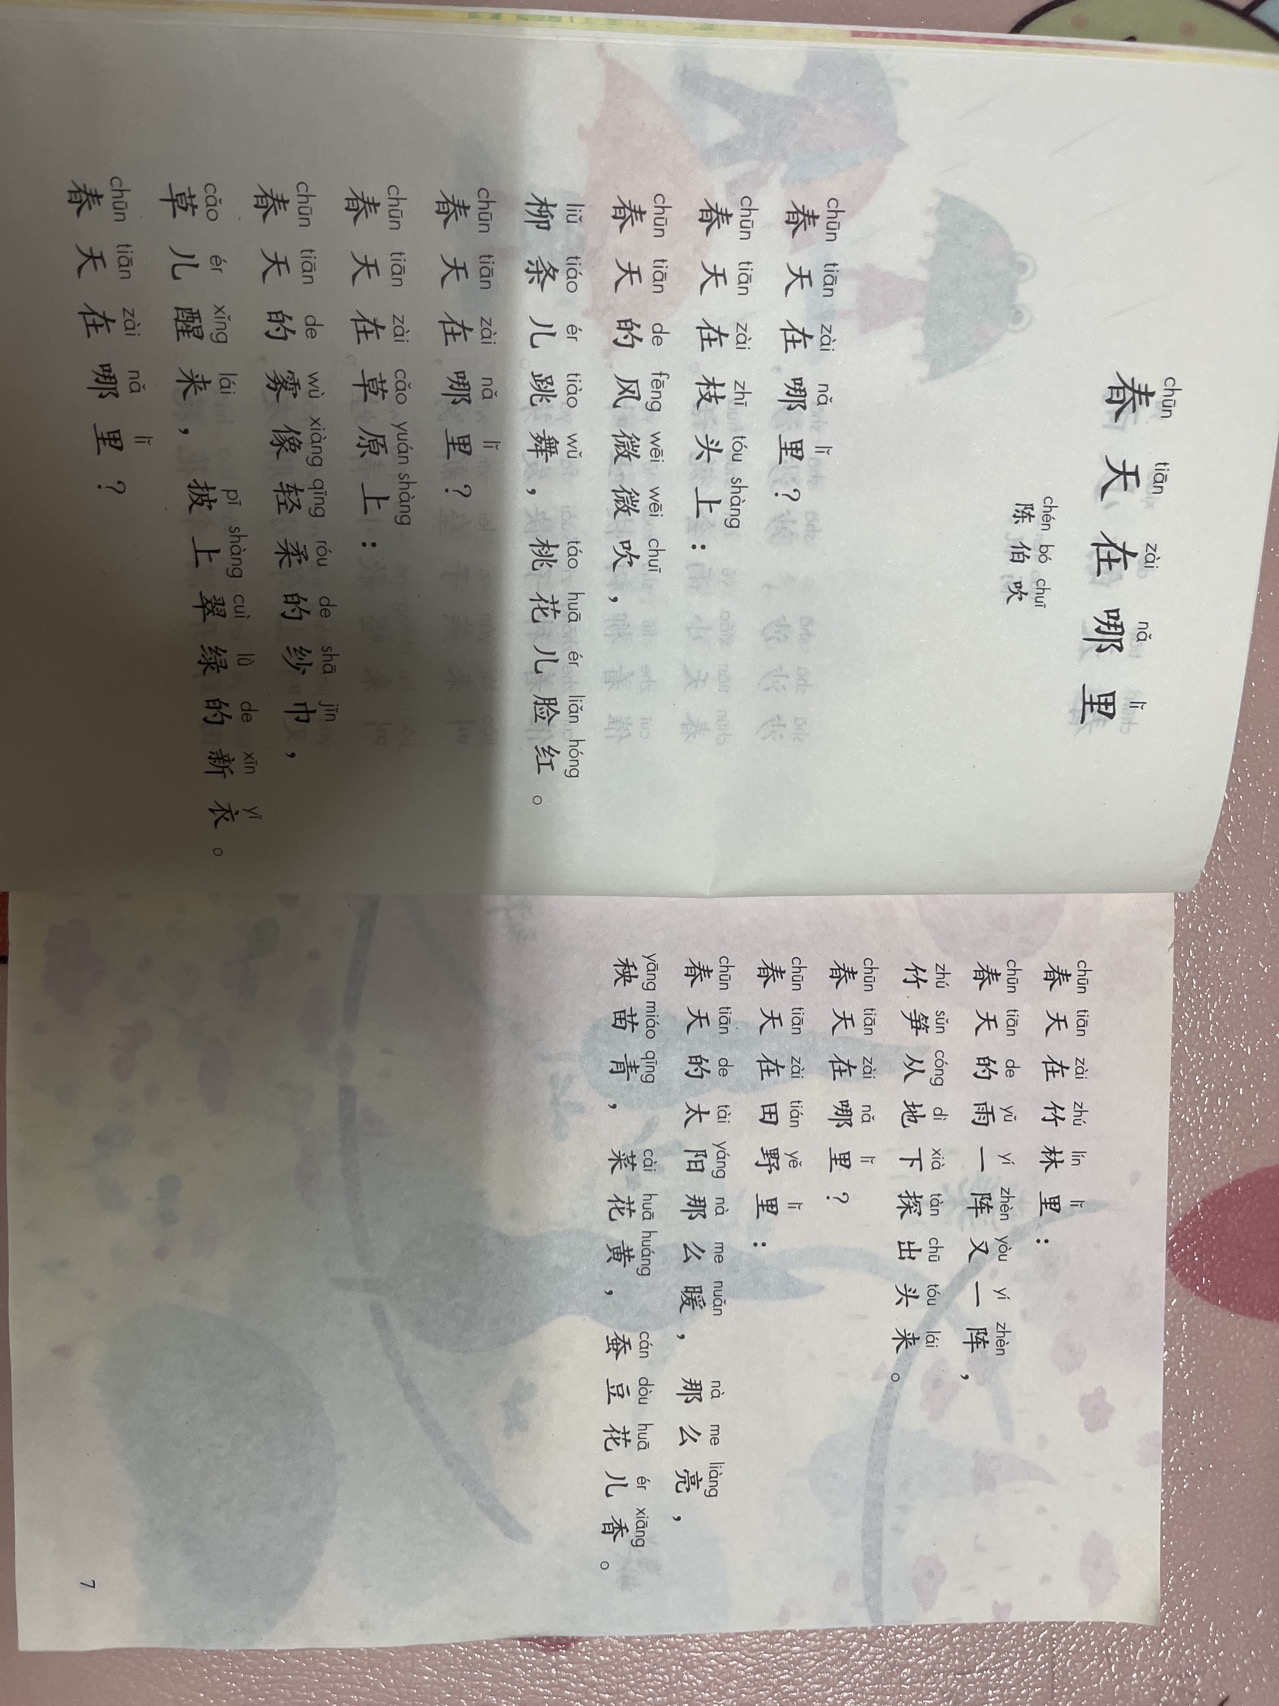 chūn tiān zài nǎ lǐ
春天在哪里
chén bó chuī
陈伯吹
chūn tiān zài nǎ lǐ
春天在哪里？
chūn tiān zài zhī tóu shàng
春天在枝头上：
chūn tiān de fēng wēi wēi chuī
春天的风微微吹，
liǔ tiáo ér tiào wǔ táo huā ér liǎn hóng
柳条儿跳舞，桃花儿脸红。
chūn tiān zài nǎ lǐ
春天在哪里？
chūn tiān zài cǎo yuán shàng
春天在草原上：
chūn tiān de wù xiàng qīng róu de shā jīn
春天的雾像轻柔的纱巾，
cǎo ér xǐng lái pī shàng cuì lǜ de xīn yī
草儿醒来，披上翠绿的新衣。
chūn tiān zài nǎ lǐ
春天在哪里？
chūn tiān zài zhú lín lǐ
春天在竹林里：
chūn tiān de yǔ yí zhèn yòu yí zhèn
春天的雨一阵又一阵，
zhú sǔn cóng dì xià tàn chū tóu lái
竹笋从地下探出头来。
chūn tiān zài nǎ lǐ
春天在哪里？
chūn tiān zài tián yě lǐ
春天在田野里：
chūn tiān de tài yáng nà me nuǎn nà me liàng
春天的太阳那么暖，那么亮，
yāng miáo qīng cài huā huáng cán dòu huā ér xiāng
秧苗青，菜花黄，蚕豆花儿香。
7